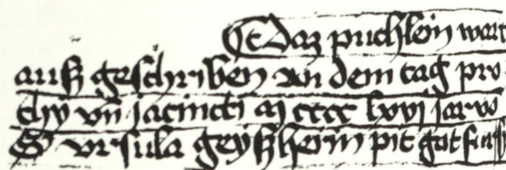 Daz puchlein wart
auß geschriben an dem tag pro
thy vn̄ jacincti M cccc lxvj jar vo
S vrsula geyßherin pit got für